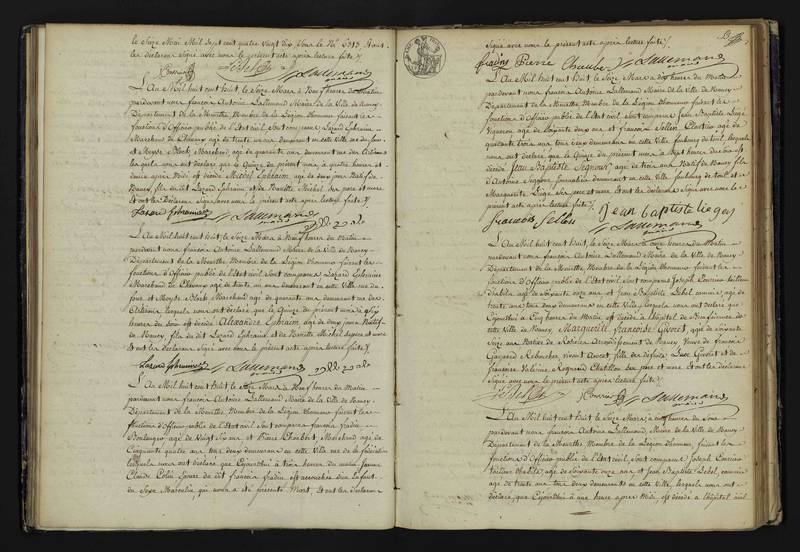 le Seize Mai Mil Sept cent quatre vingt dix sous le No 6313. Et ont
les déclarans Signé avec nous le présent acte après lecture faite /.
Lallemand
L'An Mil huit cent huit le Seize Mars à Neuf heures du Matin
pardevant nous françois Antoine Lallemand Maire de la Ville de Nancy
Département de la Meurthe Membre de la Légion d'honneur faisant les
fonctions d'Officier public de l'Etat civil. Sont comparus Lazard Ephraim
Marchand de Chevaux agé de trente un ans demeurant en cette Ville rue du four
et Moyse Block Marchand agé de quarante ans demeurant rue des
lesquels nous ont déclaré que le Quinze du présent mois, à quatre heures et
demie après Midi est décédé Michel Ephraim agé de deux jours Natif de
Nancy fils du dit Lazard Ephraim et de Babette Michel ses père et mère
et ont les Déclarans Signé avec nous le présent acte après lecture faite /.
Lazard Ephraim Lallemand
maire
L'An Mil huit cent huit, le Seize Mars à Neuf heures du Matin
pardevant nous françois Antoine Lallemand Maire de la Ville de Nancy
Département de la Meurthe Membre de la Légion d'honneur faisant les
fonctions d'Officier public de l'Etat civil Sont comparus Lazard Ephraim
Marchand de Chevaux agé de trente un ans demeurant en cette Ville rue du
four, et Moyse Block Marchand agé de quarante ans demeurant rue des
lesquels nous ont déclaré que le Quinze du présent mois à
heures du Soir est décédé Alexandre Ephraim agé de deux jours Natif
de Nancy, fils du dit Lazard Ephraim et de Babette Michel ses père et mère
et ont les déclarans Signé avec nous le présent acte après lecture faite /.
Lazard Ephraim Lallemand
maire
L'An Mil huit cent huit le Seize Mars à Neuf heures du Matin
pardevant nous françois Antoine Lallemand Maire de la Ville de Nancy
Département de la Meurthe Membre de la Légion d'honneur faisant les
fonctions d'Officier public de l'Etat civil Sont comparus françois
Boulanger agé de Vingt ans et Pierre Chamber Marchand agé de
Cinquante quatre ans tous deux demeurans en cette Ville rue de la
lesquels nous ont déclaré que Cejourd'hui à trois heures du matin Jeanne
Claude Colin Epouse du dit françois est accouchée d'un Enfant
du Sexe Masculin, qui nous a été présenté Mort, Et ont les Déclarans
Signé avec nous le présent acte après lecture faite /.
Pierre Chamber Lallemand
L'An Mil huit cent huit le Seize Mars à dix heures du Matin
pardevant nous françois Antoine Lallemand Maire de la Ville de Nancy
Département de la Meurthe Membre de la Légion d'honneur faisant les
fonctions d'Officier public de l'Etat civil. Sont comparus Jean Baptiste Liegey
Vigneron agé de Soixante deux ans et françois Sellon Cloutier agé de
quarante trois ans tous deux demeurans en cette Ville faubourg de toul, lesquels
nous ont déclaré que le Quinze du présent mois à sept heures du Soir est
décédé Jean Baptiste Seignour agé de trois ans Natif de Nancy fils
d'Antoine Seignour Journalier demeurant en cette Ville faubourg de toul et de
Marguerite Liegey Ses père et mère et ont les déclarans Signé avec nous le
présent acte après lecture faite /.
francois Sellon Jean baptiste liegey
Lallemand
maire
L'An Mil huit cent huit, le Seize Mars à onze heures du Matin
pardevant nous françois Antoine Lallemand Maire de la Ville de Nancy
Département de la Meurthe, Membre de la Légion d'honneur faisant les
fonctions d'Officier public de l'Etat civil. Sont comparus Joseph tailleur
d'habits agé de Soixante onze ans et Jean Baptiste Lebel commis agé de
trente ans tous deux demeurans en cette Ville, lesquels nous ont déclaré que
Cejourd'hui à Cinq heures du Matin est décédée à l'hôpital de Bienfaisance de
cette Ville de Nancy, Marguerite Françoise Givret, agé de Soixante
Seize ans Native de Arrondissement de Nancy Veuve de françois
Gaspard vivant Avocat, fille des défunts Luc Givret et de
Françoise Valérie Chatillon Ses père et mère Et ont les déclarans
Signé avec nous le présent acte après lecture faite /.
Lallemand
maire
L'An Mil huit cent huit le Seize Mars à heures du Soir
pardevant nous françois Antoine Lallemand Maire de la Ville de Nancy
Département de la Meurthe, Membre de la Légion d'honneur faisant les
fonctions d'Officier public de l'Etat civil Sont comparus Joseph
tailleur d'habits agé de Soixante onze ans, et Jean Baptiste Lebel, commis
agé de trente ans tous deux demeurans en cette Ville, lesquels nous ont
déclaré, que Cejourd'hui à une heure après Midi, est décédé à l'hôpital civil